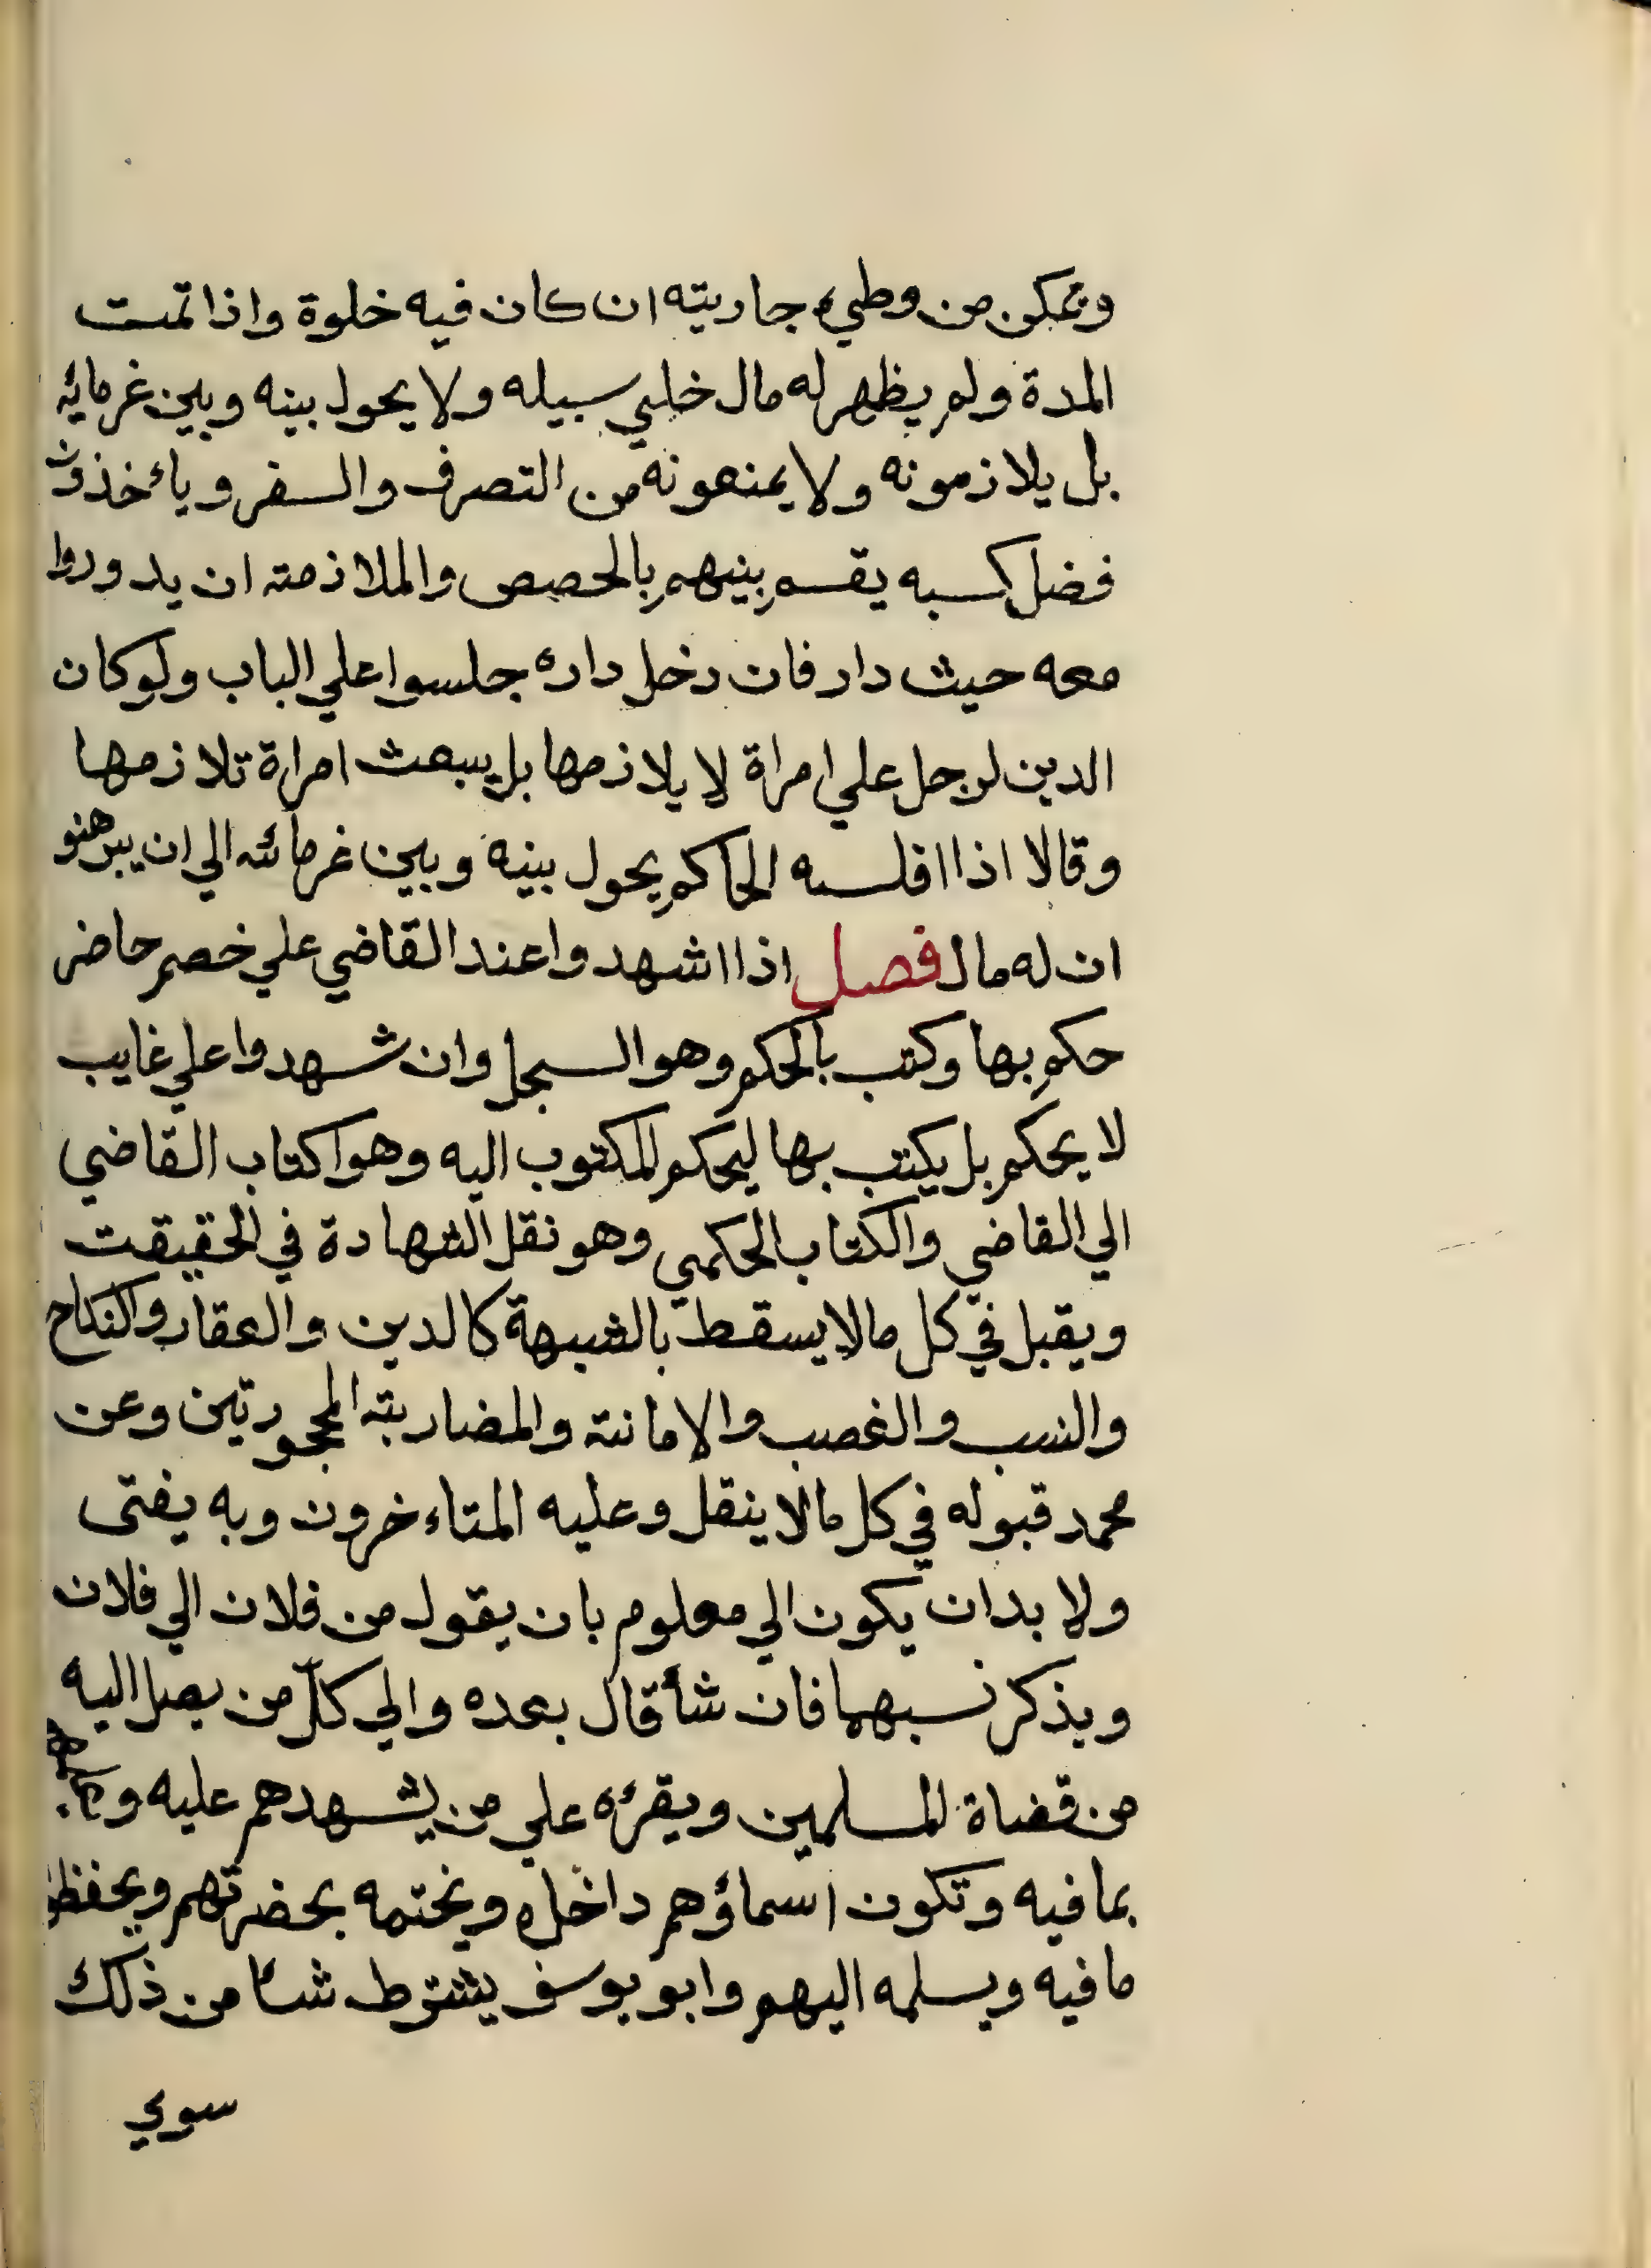 ويمكن من وطيء جاريته ان كان فيه خلوة واذا تمت
المدة ولم يظهر له مال خلي سبيله ولا يحول بينه وبين غرمايه
بل يلازمونه ولا يمنعونه من التصرف والسفر وياءخذون
فضل كسبه يقسم بينهم بالحصص والملازمته ان يدوروا
معه حيث دار فان دخل داره جلسوا علي الباب ولو كان
الدين لرجل علي امراة لا يلازمها بل يبعث امراة تلازمها
وقالا اذا افلسه الحاكم يحول بينه وبين غرمائه الي ان يبرهنو
ان له مال فصل اذا اشهدوا عند القاضي علي خصم حاضر
حكم بها وكتب بالحكم وهو السجل وان شهدوا علي غايب
لا يحكم بل يكتب بها ليحكم المكتوب اليه وهوا كتاب القاضي
الي القاضي والكتاب الحكمي وهو نقل الشهادة في الحقيقت
ويقبل في كل مالا يسقط بالشبهة كالدين والعقار والنكاح
والنسب والغصب والامانته والمضاربته المجحورتين وعن
محمد قبوله في كل مالا ينقل وعليه المتاءخرون وبه يفتى
ولا بد ان يكون الي معلوم بان يقول من فلان الي فلان
ويذكر نسبهما فان شأ قال بعده والي كلّ من يصل اليه
من قضاة المسلمين ويقرئه علي من يشهدهم عليه
بما فيه وتكون اسماؤهم داخله ويختمه بحضرتهم ويحفظو
ما فيه ويسلمه اليهم وابو يوسف يشترط شأ من ذلك
سوي